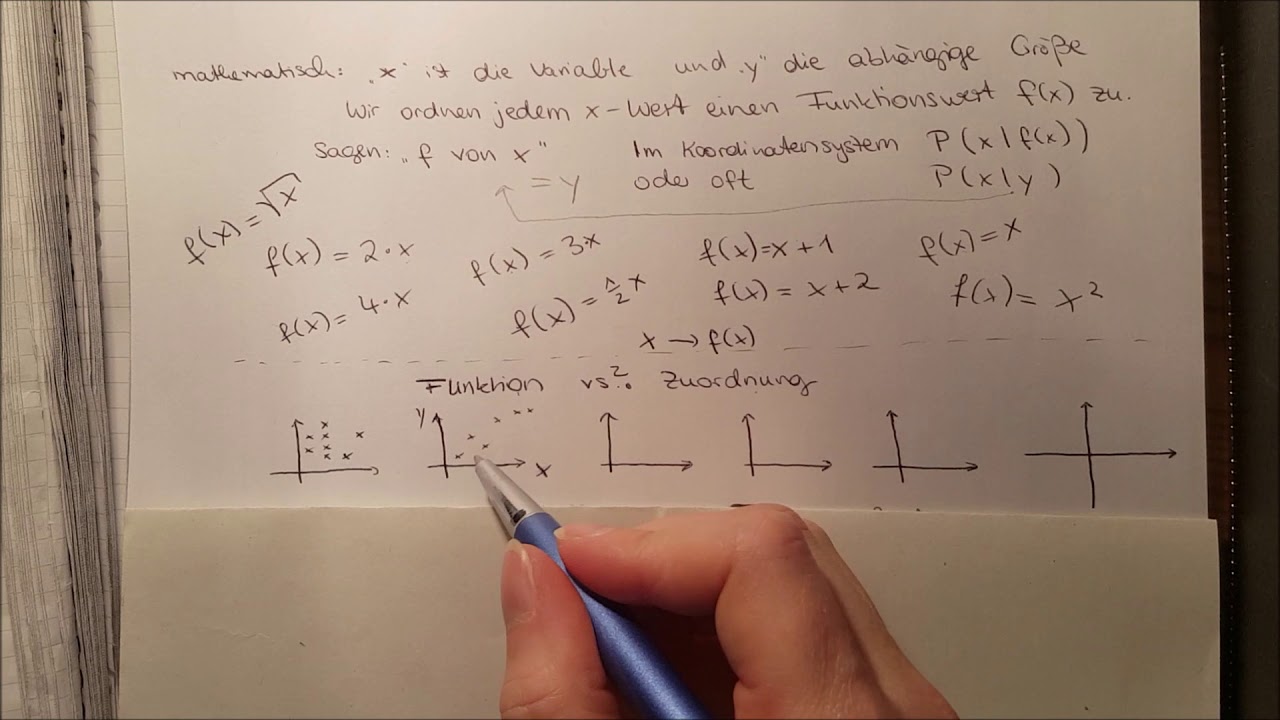 mathematisch: „x“ ist die Variable und „y“ die abhängige Größe
Wir ordnen jedem x-Wert einen Funktionswert f(x) zu.
Sagen: „f von x“ Im Koordinatensystem P(x|f(x))
= y oder oft P(x|y)
f(x)=√x
f(x) = 2·x f(x) = 3·x f(x)=x+1 f(x)=x
f(x)= 4·x f(x)=½x f(x) = x+2 f(x)= x²
x → f(x)
Funktion vs.? Zuordnung
y
x